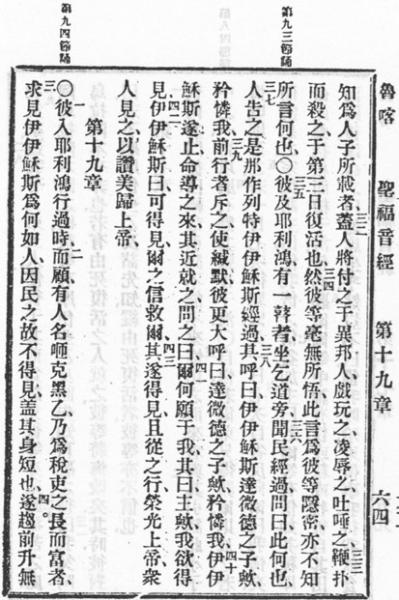 第九三節
第九四節
魯喀 聖福音經 第十九章 六四
知爲人子所載者三二蓋人將付之于異邦人戲玩之凌辱之吐唾之三三鞭扑
而殺之于第三日復活也三四然彼等毫無所悟此言爲彼等隱密亦不知
所言何也○三五彼及耶利鴻有一瞽者坐乞道旁三六聞民經過問曰此何也
三七人告之是那作列特伊伊穌斯經過三八其呼曰伊伊穌斯達微德之子歟
矜憐我三九前行者斥之使緘默彼更大呼曰達微德之子歟矜憐我四十伊伊
穌斯遂止命導之來其近就之問之四一曰爾何願于我其曰主歟我欲得
見四二伊伊穌斯曰可得見爾之信救爾四三其遂得見且從之行榮光上帝衆
人見之以讚美歸上帝
第十九章
○一彼入耶利鴻行過時二而顧有人名咂克黑乙乃爲稅吏之長而富者
三求見伊伊穌斯爲何如人因民之故不得見蓋其身短也四遂趨前升無